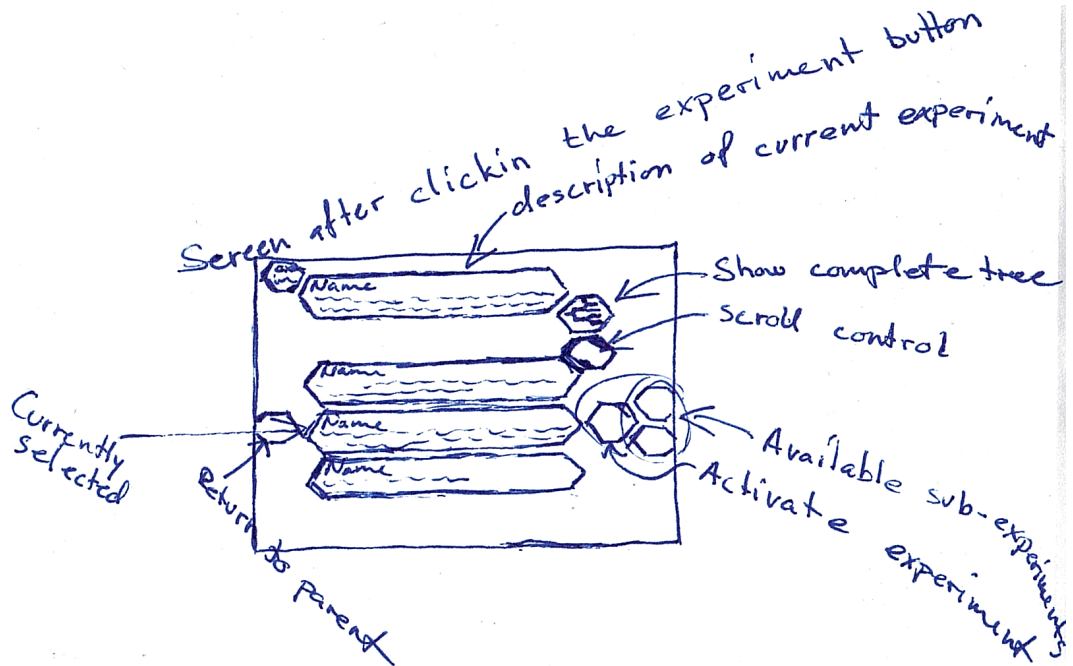 Screen after clickin the experiment button
description of current experiment
Show complete tree
Scroll control
Name
Name
Name
Name
Currently
selected
Return to parent
Available sub-experiments
Activate experiment